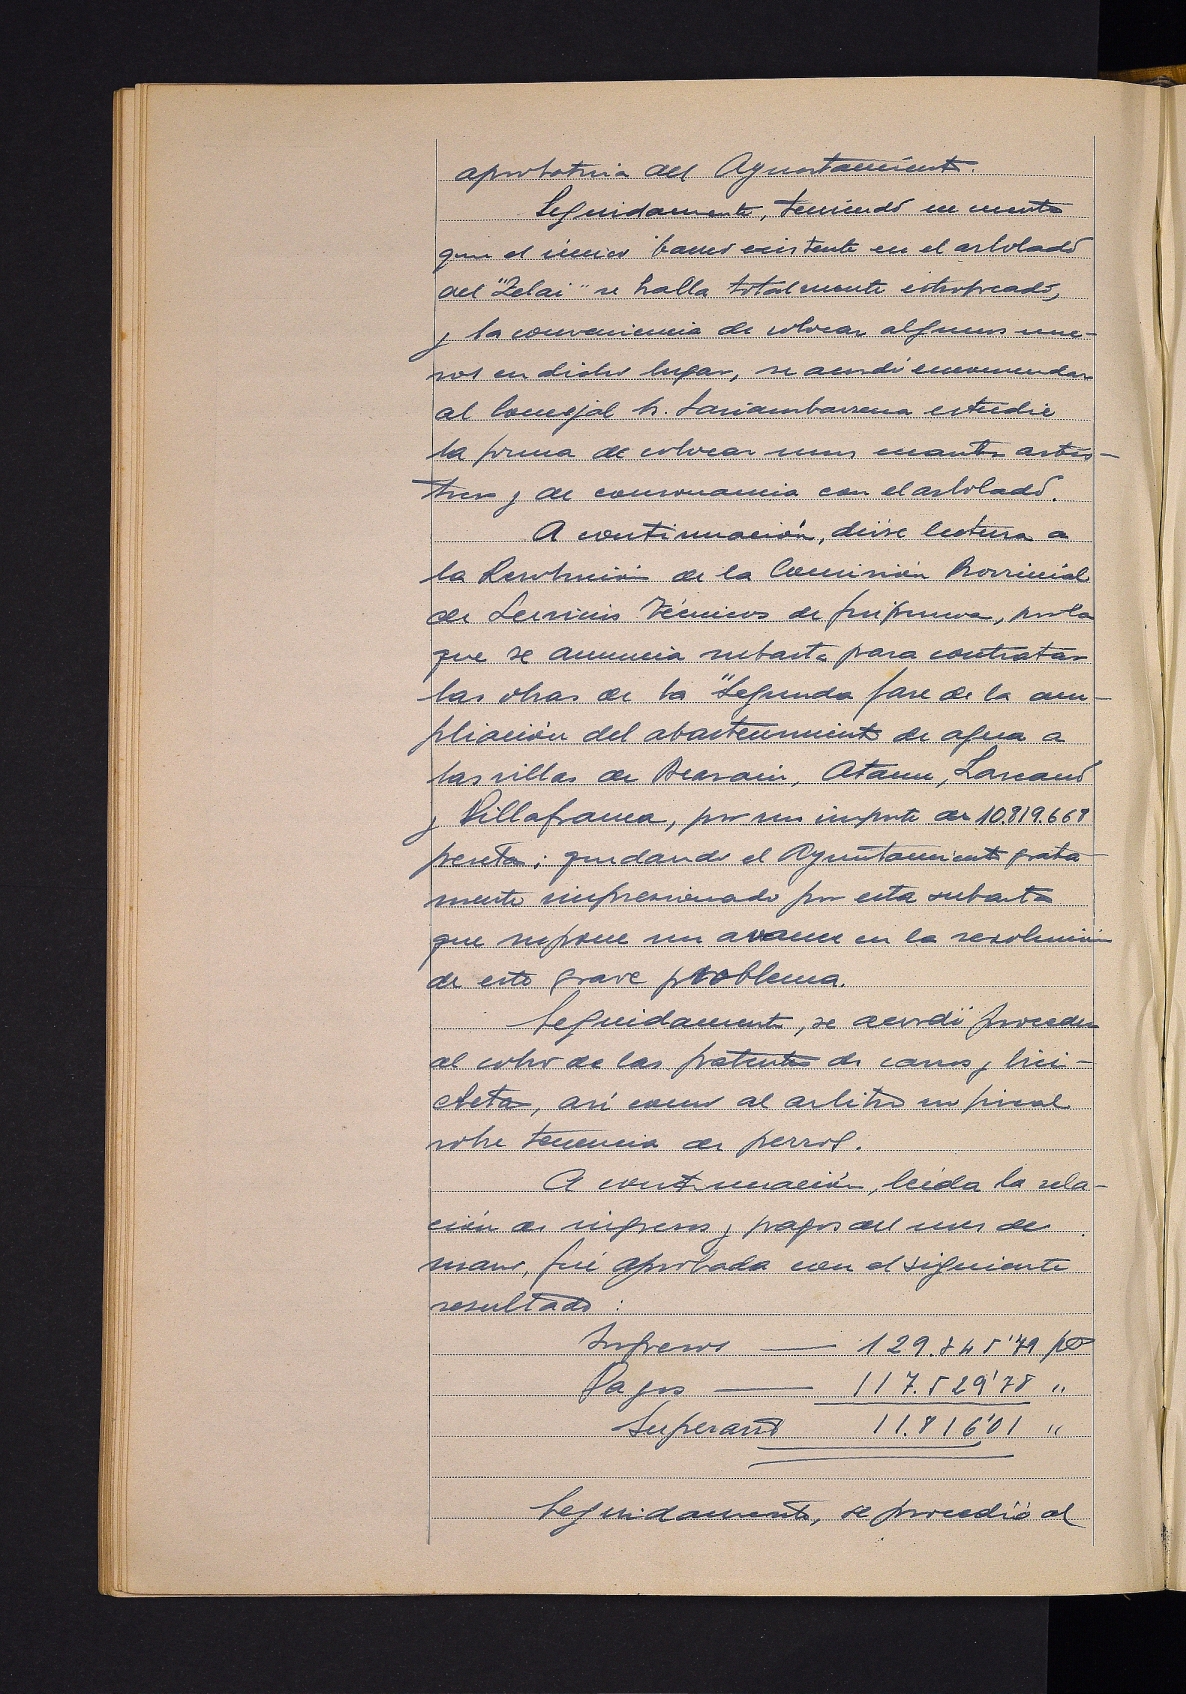 aprobatoria del Ayuntamiento.
Seguidamente, teniendo en cuenta
que el único banco existente en el arbolado
del "Zelai" se halla totalmente estropeado,
y la conveniencia de colocar algunos nue-
vos en dicho lugar, se acordó encomendar
al Concejal Sr. Lariambarrena estudie
la forma de colocar unos cuantos artís-
ticos y de consonancia con el arbolado.
A continuación, dióse lectura a
la Resolución de la Comisión Provincial
de Servicios Técnicos de Guipúzcoa, por la
que se anuncia subasta para contratar
las obras de la "Segunda fase de la am-
pliación del abastecimiento de agua a
las villas de Beasain, Ataun, Lazcano
y Villafranca, por un importe de 10.819.668
pesetas; quedando el Ayuntamiento grata-
mente impresionado por esta subasta
que supone un avance en la resolución
de este grave problema.
Seguidamente, se acordó proceder
al cobro de las patentes de carros y bici-
cletas, así como al arbitrio no fiscal
sobre tenencia de perros.
A continuación, leída la rela-
ción de ingresos y pagos del mes de
marzo, fué aprobada con el siguiente
resultado:
Ingresos — 129.345'79 pts
Pagos — 117.529'78 "
Superavit 11.816'01 "
Seguidamente, se procedió al